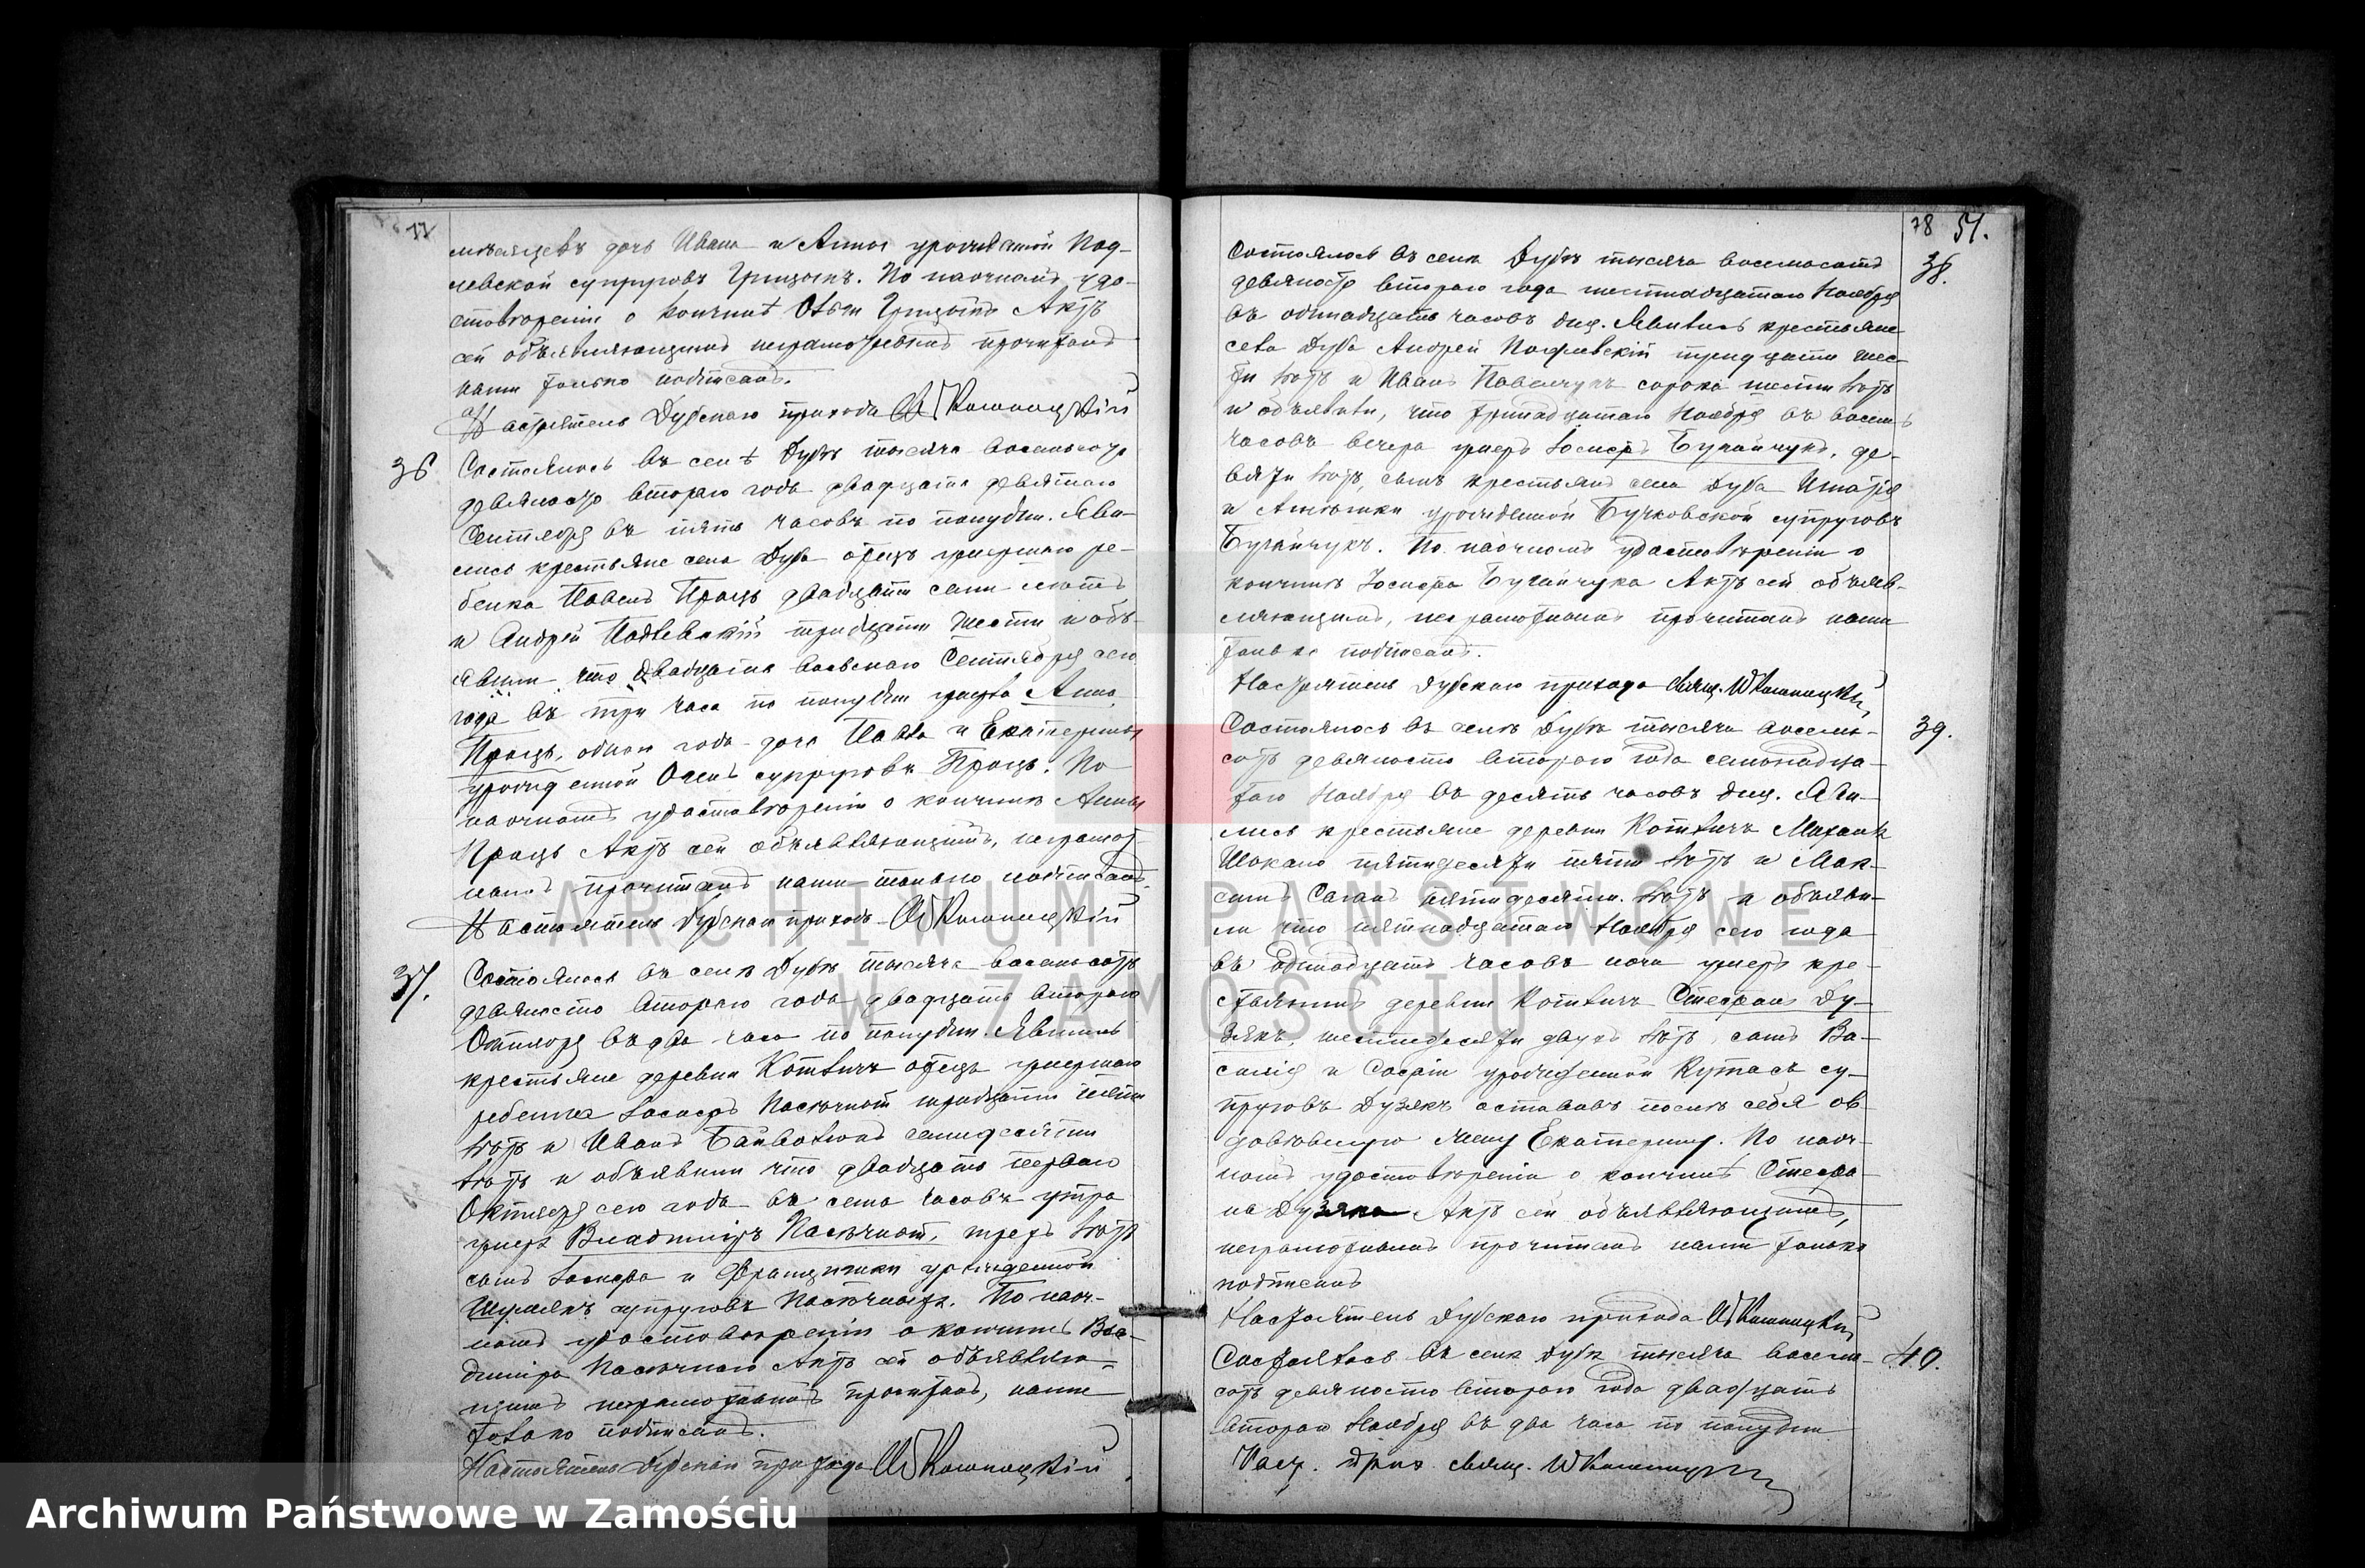 77
мѣсяцевъ дочь Ивана и Анны урожденной Под-
левской супруговъ Грицынъ. По наочномъ удо-
стовѣреніи о кончинѣ Грицынъ Актъ
сей объявляющимъ неграмотнымъ прочитанъ
нами только подписанъ.
Настоятель Дубскаго прихода
36 Состоялось въ селѣ Дубѣ тысяча восемьсотъ
девяносто втораго года двадцать девятаго
Сентября въ пять часовъ по полудни. Яви-
лись крестьяне села Дуба отецъ умершаго ре-
бенка Павелъ Процъ двадцати семи лѣтъ
и Андрей Подлевскій тридцати шести и объ-
явили что двадцать восьмаго Сентября сего
года въ три часа по полудни умерла Анна
Процъ, одного года дочь Павла и Екатерины
урожденной супруговъ Процъ. По
наочномъ удостовѣреніи о кончинѣ Анны
Процъ Актъ сей объявляющимъ, неграмот-
нымъ прочитанъ нами только подписанъ.
Настоятель Дубскаго прихода
37. Состоялось въ селѣ Дубѣ тысяча восемьсотъ
девяносто втораго года двадцать втораго
Октября въ два часа по полудни. Явились
крестьяне деревни Котличъ отецъ умершаго
ребенка Іосифъ Пасѣчный тридцати пяти
лѣтъ и Иванъ семидесяти
лѣтъ и объявили что двадцать перваго
Октября сего года въ семь часовъ утра
умеръ Владиміръ Пасѣчный, трехъ лѣтъ
сынъ Іосифа и Францишки урожденной
супруговъ Пасѣчныхъ. По наоч-
номъ удостовѣреніи о кончинѣ Вла-
диміра Пасѣчнаго Актъ сей объявляю-
щимъ неграмотнымъ прочитанъ, нами
только подписанъ.
Настоятель Дубскаго прихода
78 51.
Состоялось въ селѣ Дубѣ тысяча восемьсотъ 38.
девяносто втораго года шестнадцатаго Ноября
въ одинадцать часовъ дня. Явились крестьяне
села Дуба Андрей Подлевскій тридцати шес-
ти лѣтъ и Иванъ сорока шести лѣтъ
и объявили, что тринадцатаго Ноября въ восемь
часовъ вечера умеръ Іосифъ Бугайчукъ, де-
вяти лѣтъ сынъ крестьянъ села Дуба Игнатія
и урожденной Бучковской супруговъ
Бугайчукъ. По наочномъ удостовѣреніи о
кончинѣ Іосифа Бугайчука Актъ сей объяв-
ляющимъ, неграмотнымъ прочитанъ нами
только подписанъ.
Настоятель Дубскаго прихода свящ.
Состоялось въ селѣ Дубѣ тысяча восемь- 39.
сотъ девяносто втораго года семнадца-
таго Ноября въ десять часовъ дня. Яви-
лись крестьяне деревни Котличъ Михаилъ
Шокало пятидесяти пяти лѣтъ и Мак-
симъ Саганъ пятидесяти лѣтъ и объяви-
ли что пятнадцатаго Ноября сего года
въ одинадцать часовъ ночи умеръ кре-
стьянинъ деревни Котличъ Стефанъ Ду-
зякъ, шестидесяти двухъ лѣтъ, сынъ Ва-
силія и Софіи урожденной су-
пруговъ Дузякъ оставивъ послѣ себя ов-
довѣвшую жену Екатерину. По наоч-
номъ удостовѣреніи о кончинѣ Стефа-
на Дузяка Актъ сей объявляющимъ,
неграмотнымъ прочитанъ нами только
подписанъ
Настоятель Дубскаго прихода
Состоялось въ селѣ Дубѣ тысяча восемь- 40.
сотъ девяносто втораго года двадцать
втораго Ноября въ два часа по полудни
Наст. прих. свящ.
ARCHIWUM PAŃSTWOWE
W ZAMOŚCIU
Archiwum Państwowe w Zamościu